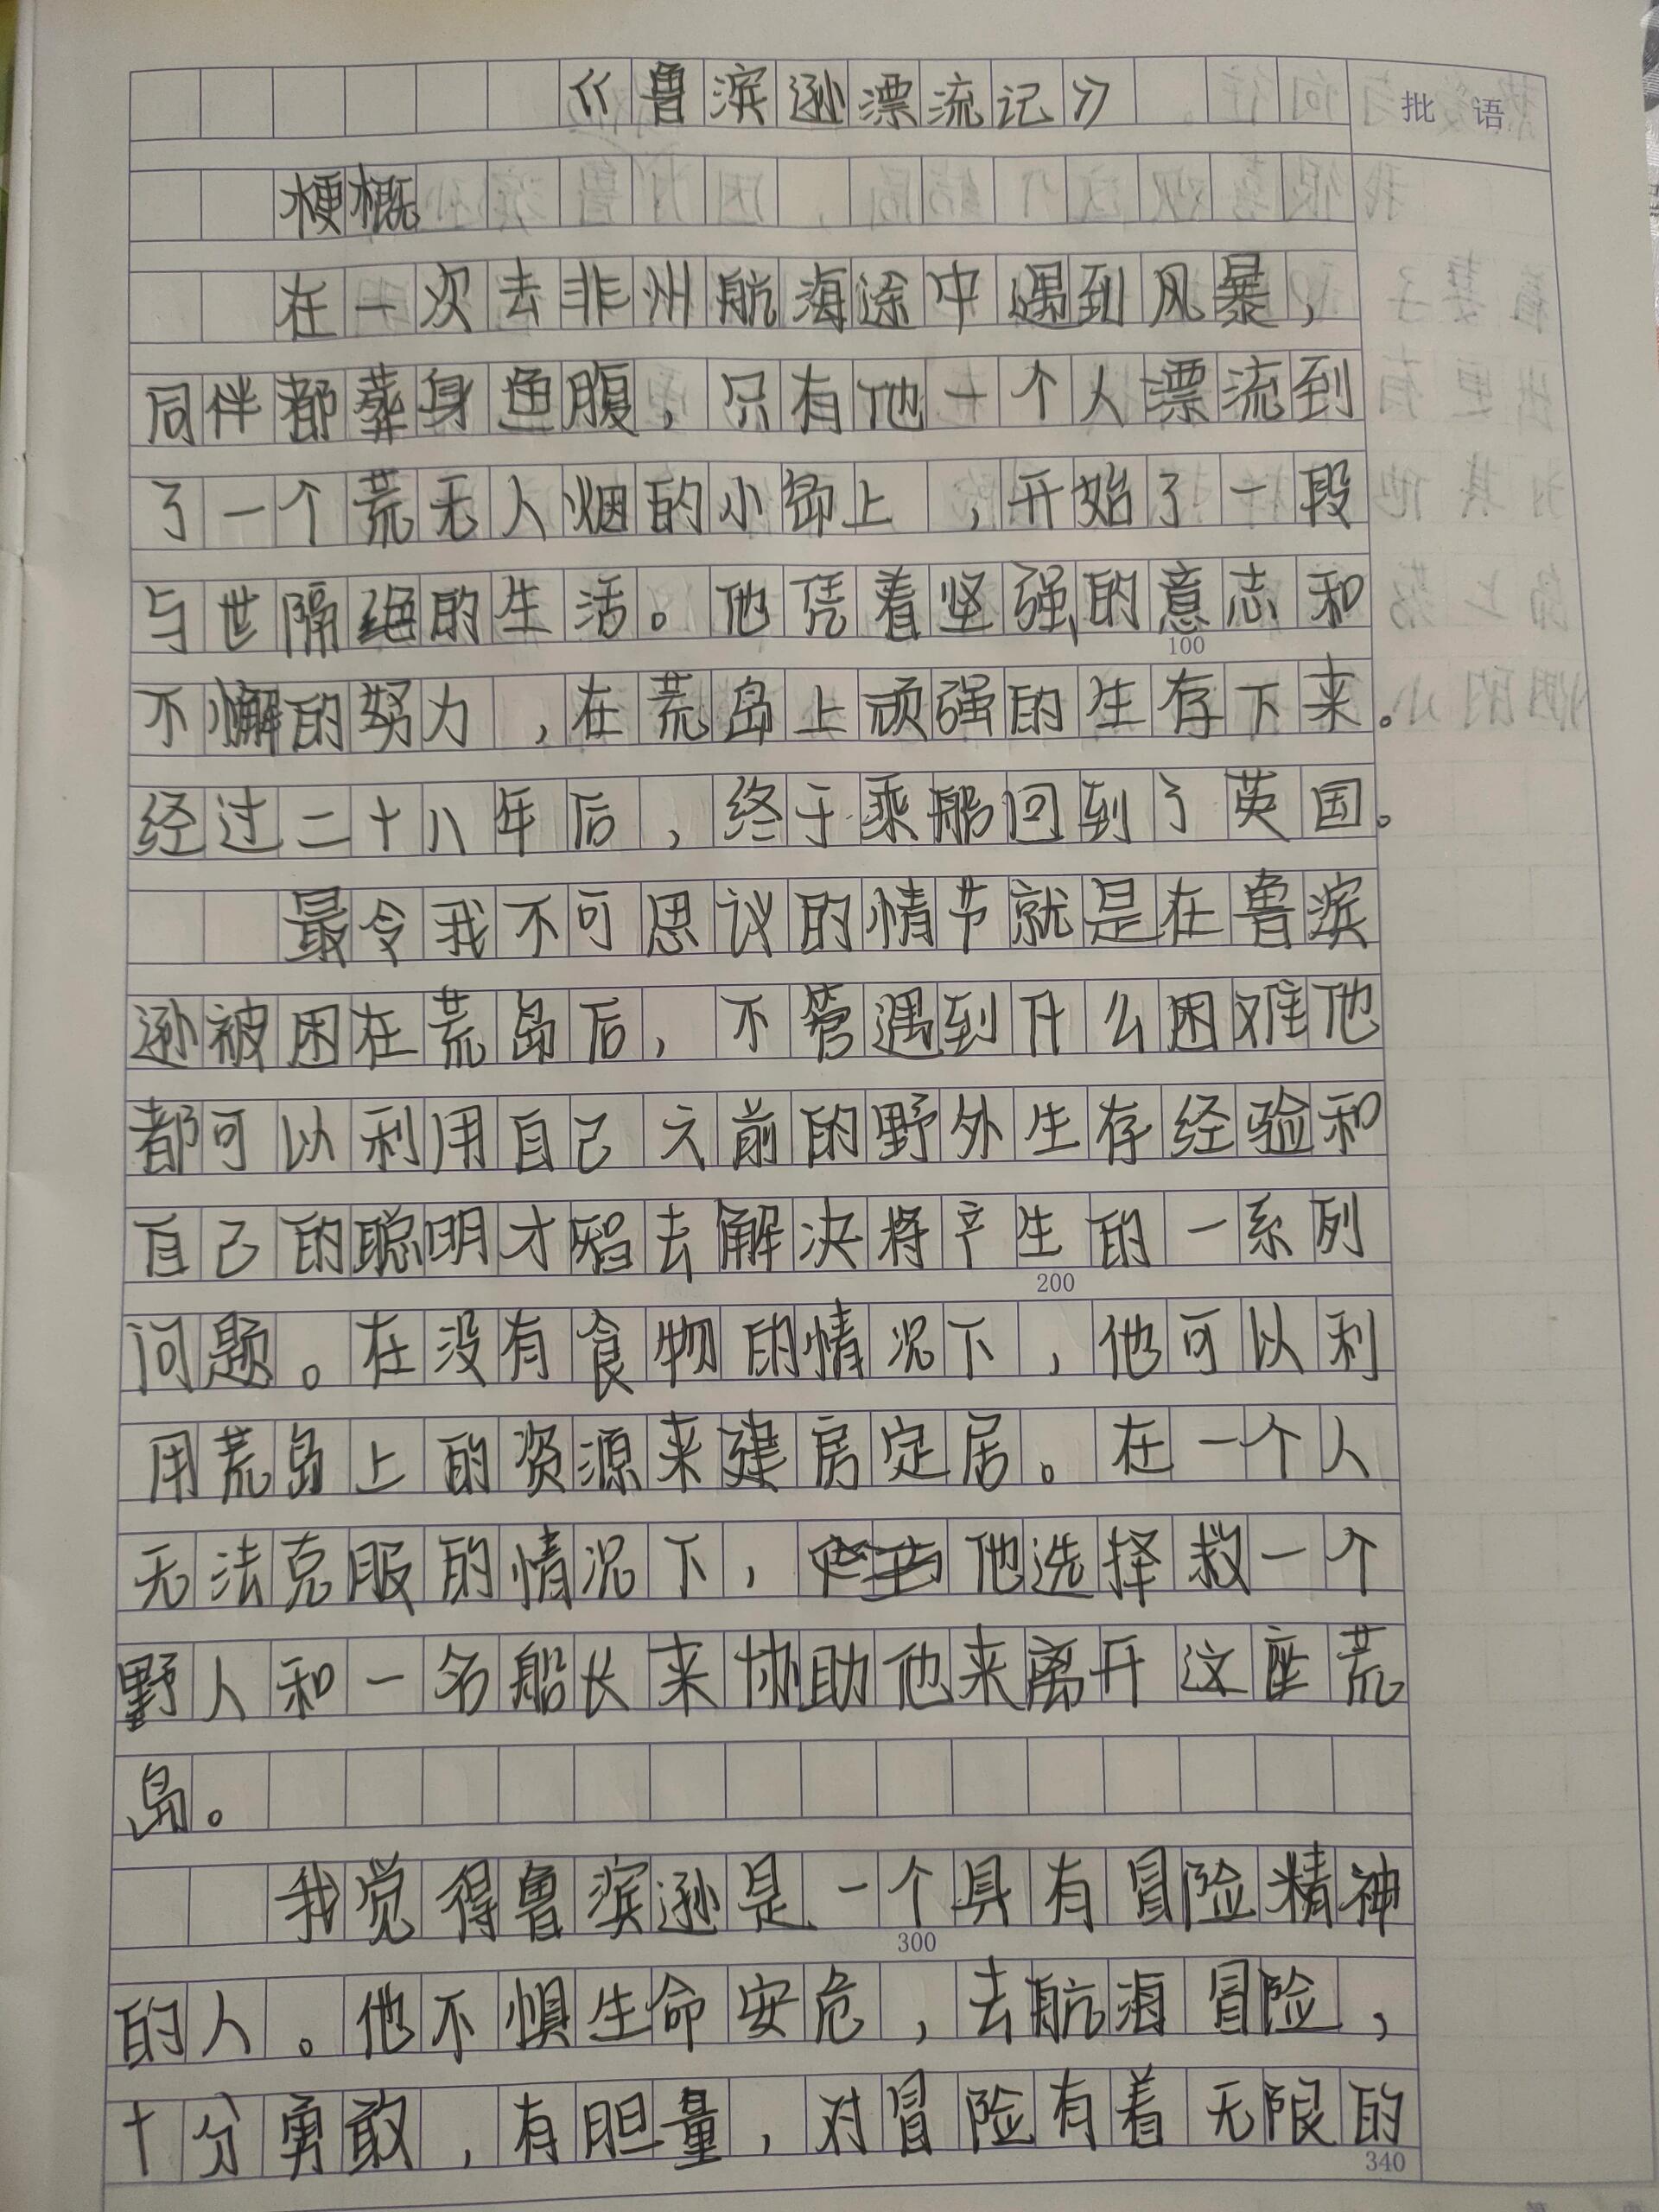 《鲁滨逊漂流记》
批语
梗概
在一次去非州航海途中遇到风暴，
同伴都葬身鱼腹，只有他一个人漂流到
了一个荒无人烟的小岛上，开始了一段
与世隔绝的生活。他凭着坚强的意志和
100
不懈的努力，在荒岛上顽强的生存下来。
经过二十八年后，终于乘船回到了英国。
最令我不可思议的情节就是在鲁滨
逊被困在荒岛后，不管遇到什么困难他
都可以利用自己之前的野外生存经验和
自己的聪明才智去解决将产生的一系列
200
问题。在没有食物的情况下，他可以利
用荒岛上的资源来建房定居。在一个人
无法克服的情况下，他选择救一个
野人和一名船长来协助他来离开这座荒
岛。
我觉得鲁滨逊是一个具有冒险精神
300
的人。他不惧生命安危，去航海冒险，
十分勇敢，有胆量，对冒险有着无限的
340